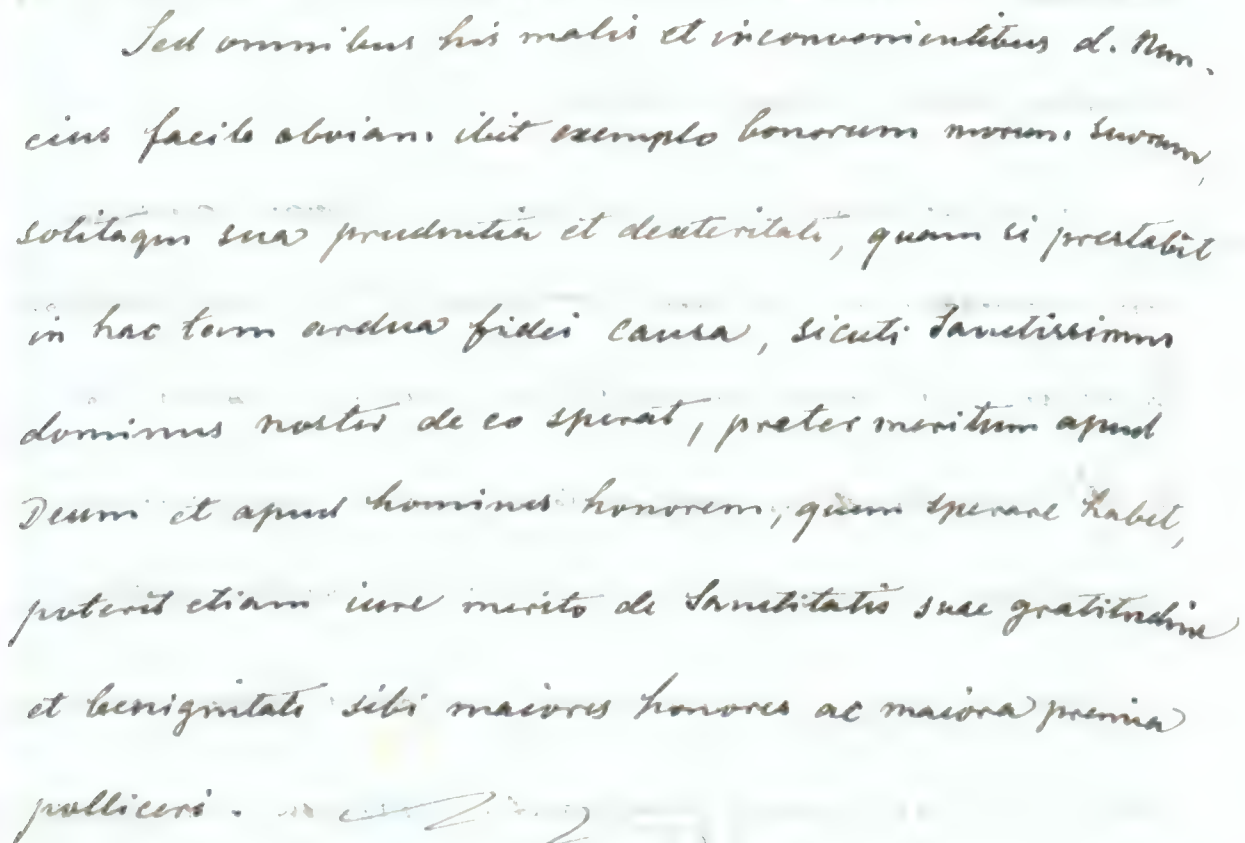 Sed omnibus his malis et inconvenientibus d. Nun-
cius facile obviam ibit exemplo bonorum morum suorum,
solitaque sua prudentia et dexteritate, quam si prestabit
in hac tam ardua fidei causa, sicuti Sanctissimus
dominus noster de eo sperat, preter meritum apud
Deum et apud homines honorem, quem sperare habet,
poterit etiam iure merito de Sanctitatis suae gratitudine
et benignitate sibi maiores honores ac maiora premia
polliceri.